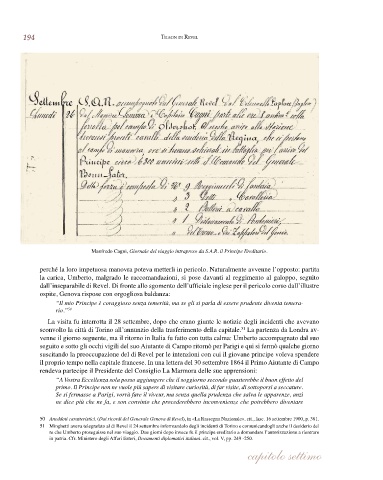 294
Thaon di Revel
Settembre S.A.R. accompagnato dal Generale Revel, dal Colonnello
Lunedi 26 dal Maggiore e Capitano Cagni, parte alle ore 8 antim. colla
ferrovia pel campo di Aldershot. All'
cavalli della scuderia della Regina, che
al campo di manovra, ove si hanno schierati in battaglia per l'arrivo del
Principe circa 6300 uomini sotto il Comando del Generale
Detta forza è composta di Nº 9 Reggimenti di fanteria
" 3 Detti " Cavalleria
" 2 Batterie a cavallo
" 1 Distaccamento di Pontonieri
" del Treno e dei Zappatori del Genio.
Manfredo Cagni, Giornale del viaggio intrapreso da S.A.R. il Principe Ereditario.
perché la loro impetuosa manovra poteva metterli in pericolo. Naturalmente avvenne l'opposto: partita
la carica, Umberto, malgrado le raccomandazioni, si pose davanti al reggimento al galoppo, seguito
dall'inseparabile di Revel. Di fronte allo sgomento dell'ufficiale inglese per il pericolo corso dall'illustre
ospite, Genova rispose con orgogliosa baldanza:
"Il mio Principe è coraggioso senza temerità, ma se gli si parla di essere prudente diventa temera-
rio."50
La visita fu interrotta il 28 settembre, dopo che erano giunte le notizie degli incidenti che avevano
sconvolto la città di Torino all'annunzio della trasferimento della capitale.51 La partenza da Londra av-
venne il giorno seguente, ma il ritorno in Italia fu fatto con tutta calma: Umberto accompagnato dal suo
seguito e sotto gli occhi vigili del suo Aiutante di Campo ritornò per Parigi e qui si fermò qualche giorno
suscitando la preoccupazione del di Revel per le istruzioni con cui il giovane principe voleva spendere
il proprio tempo nella capitale francese. In una lettera del 30 settembre 1864 il Primo Aiutante di Campo
rendeva partecipe il Presidente del Consiglio La Marmora delle sue apprensioni:
"A Vostra Eccellenza sola posso aggiungere che il soggiorno secondo guasterebbe il buon effetto del
primo. Il Principe non ne vuole più sapere di visitare curiosità, di far visite, di sottoporsi a seccature.
Se si fermasse a Parigi, vorrà fare il viveur, ma senza quella prudenza che salva le apparenze, anzi
ne dice più che ne fa, e son convinto che precederebbero inconvenienze che potrebbero diventare
50 Aneddoti caratteristici. (Dai ricordi del Generale Genova di Revel), in «La Rassegna Nazionale», cit., fasc. 16 settembre 1900, p. 381.
51 Minghetti aveva telegrafato al di Revel il 24 settembre informandolo degli incidenti di Torino e comunicandogli anche il desiderio del
re che Umberto proseguisse nel suo viaggio. Due giorni dopo invece fu il principe ereditario a domandare l'autorizzazione a rientrare
in patria. Cfr. Ministero degli Affari Esteri, Documenti diplomatici italiani, cit., vol. V, pp. 249-250.
capitolo settimo